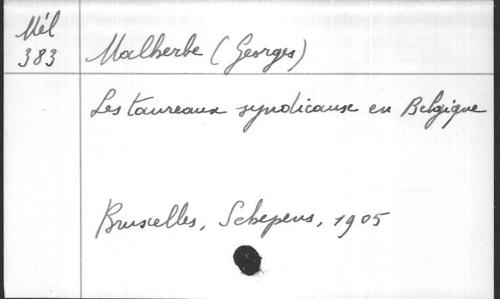 Mél
383
Malherbe (Georges)
Les taureaux syndicaux en Belgique
Bruxelles, Schepens, 1905